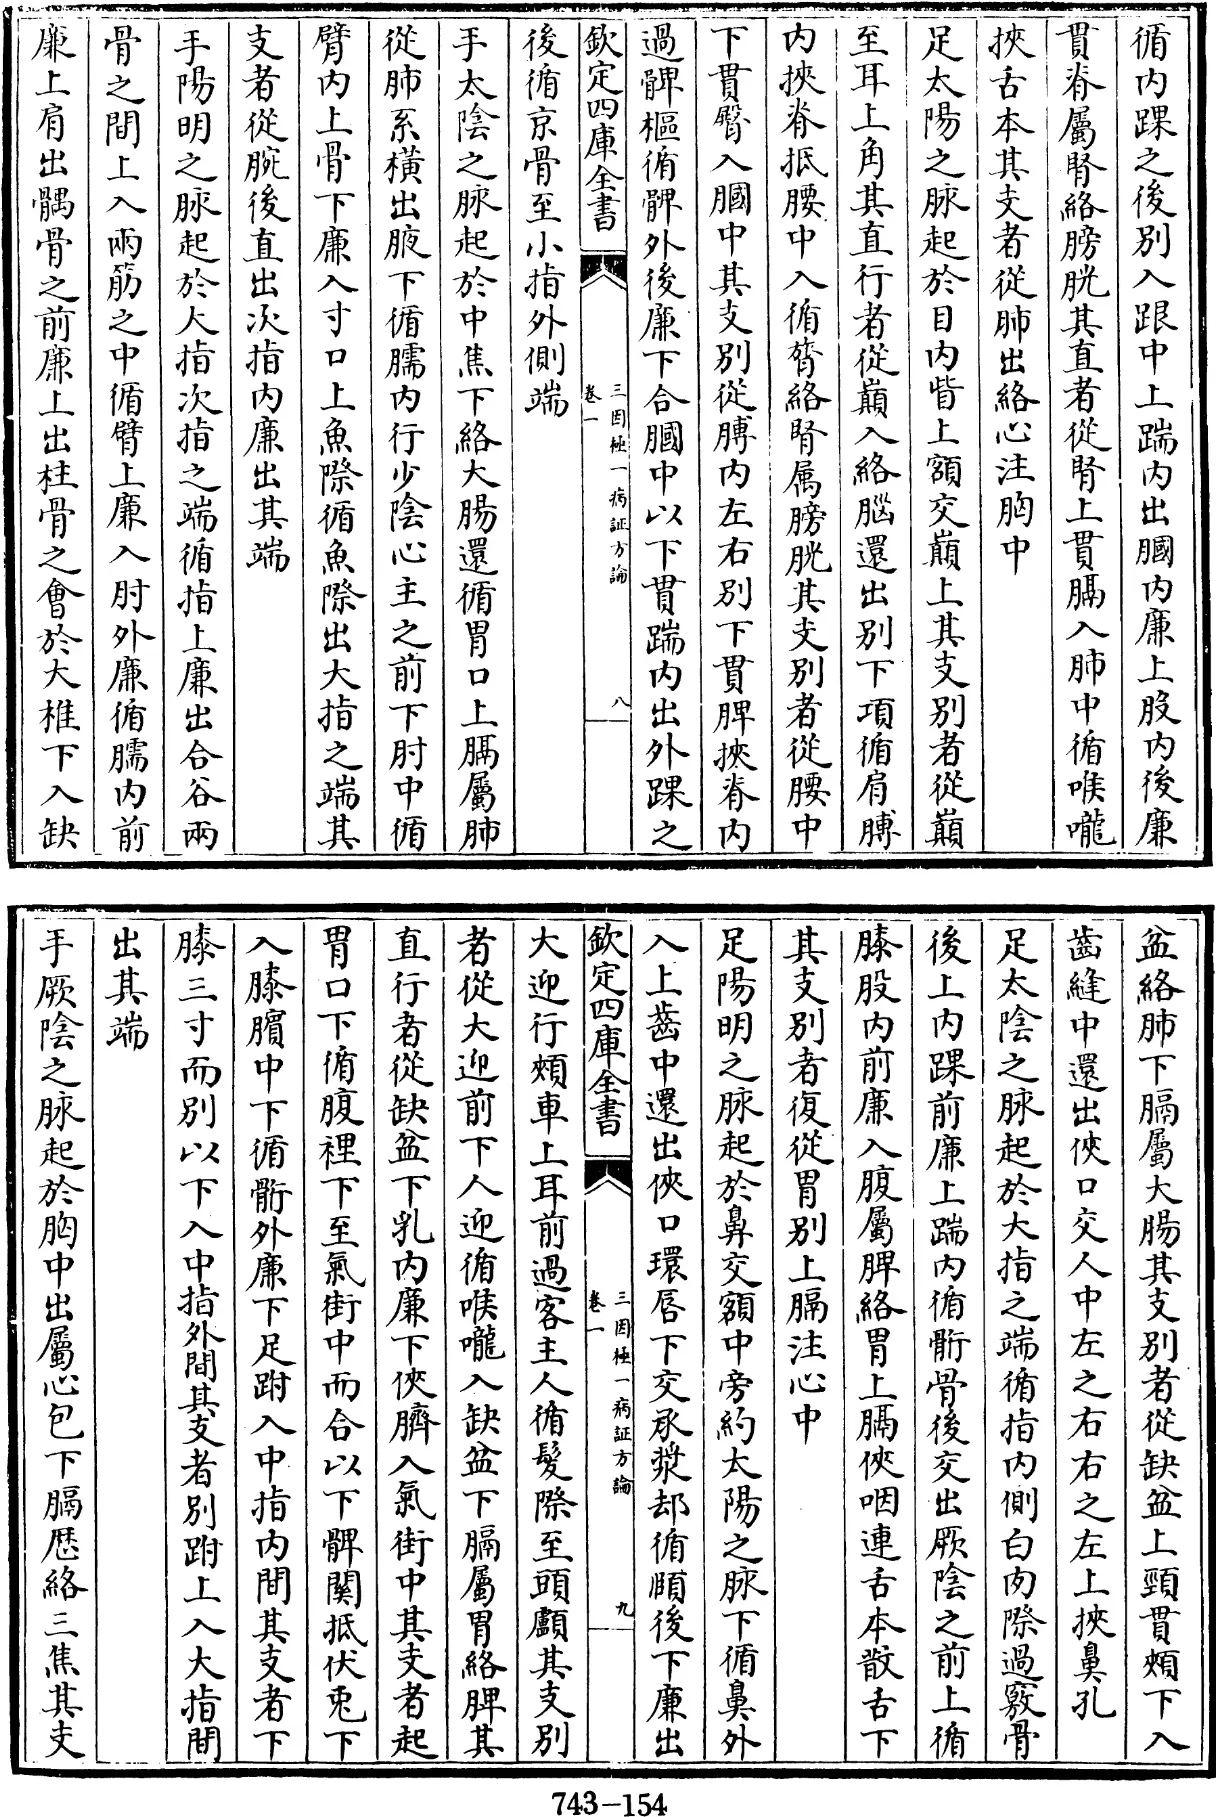 循内踝之後别入跟中上踹内出膕内廉上股内後廉
貫脊屬腎絡膀胱其直者從腎上貫膈入肺中循喉嚨
挾舌本其支者從肺出絡心注胸中
足太陽之脉起於目内眥上額交巔上其支别者從巔
至耳上角其直行者從巔入絡腦還出别下項循肩膊
内挾脊抵腰中入循膂絡腎属膀胱其支别者從腰中
下貫臀入膕中其支别從膊内左右别下貫胛挾脊内
過髀樞循髀外後廉下合膕中以下貫踹内出外踝之
欽定四庫全書
三因極一病証方論
卷一
八
後循京骨至小指外側端
手太陰之脉起於中焦下絡大腸還循胃口上膈屬肺
從肺系横出腋下循臑内行少陰心主之前下肘中循
臂内上骨下廉入寸口上魚際循魚際出大指之端其
支者從腕後直出次指内廉出其端
手陽明之脉起於大指次指之端循指上廉出合谷兩
骨之間上入兩筋之中循臂上廉入肘外廉循臑内前
廉上肩出髃骨之前廉上出柱骨之會於大椎下入缺
盆絡肺下膈屬大腸其支别者從缺盆上頸貫頰下入
齒縫中還出俠口交人中左之右右之左上挾鼻孔
足太陰之脉起於大指之端循指内側白肉際過竅骨
後上内踝前廉上踹内循骭骨後交出厥陰之前上循
膝股内前廉入腹屬脾絡胃上膈俠咽連舌本散舌下
其支别者復從胃别上膈注心中
足陽明之脉起於鼻交額中旁約太陽之脉下循鼻外
入上齒中還出俠口環唇下交承漿却循頤後下廉出
欽定四庫全書
三因極一病証方論
卷一
九
大迎行頰車上耳前過客主人循髮際至頭顱其支别
者從大迎前下人迎循喉嚨入缺盆下膈屬胃絡脾其
直行者從缺盆下乳内廉下俠臍入氣街中其支者起
胃口下循腹裡下至氣街中而合以下髀關抵伏兎下
入膝臏中下循骭外廉下足跗入中指内間其支者下
膝三寸而别以下入中指外間其支者别跗上入大指間
出其端
手厥陰之脉起於胸中出屬心包下膈歷絡三焦其支
743-154